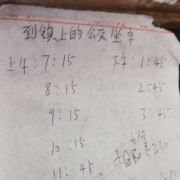 到镇上的公交坐车
上午：7：15 下午：1：45
8：15 2:45
9：15 3：45
10：15
11：45